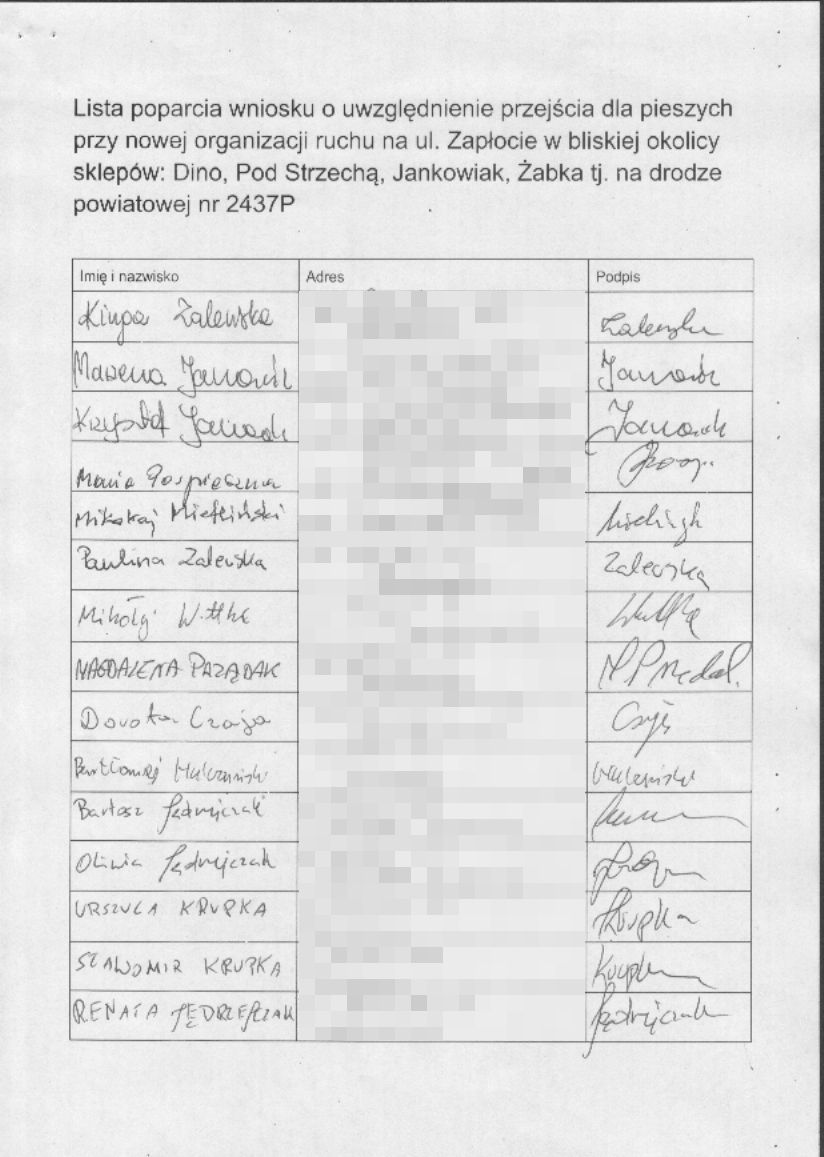 Lista poparcia wniosku o uwzględnienie przejścia dla pieszych
przy nowej organizacji ruchu na ul. Zapłocie w bliskiej okolicy
sklepów: Dino, Pod Strzechą, Jankowiak, Żabka tj. na drodze
powiatowej nr 2437P
Imię i nazwisko Adres Podpis
Kinga Zalewska Zalewska
Marzena
Krzysztof
Maria Pospieszna
Mikołaj
Paulina Zalewska Zalewska
Mikołaj Wittke
MAGDALENA PRZĄDAK
Dorota Czaja
Bartłomiej
Bartosz Jędrzejczak
Oliwia Jędrzejczak
URSZULA KRUPKA Krupka
SŁAWOMIR KRUPKA
RENATA JĘDRZEJCZAK Jędrzejczak